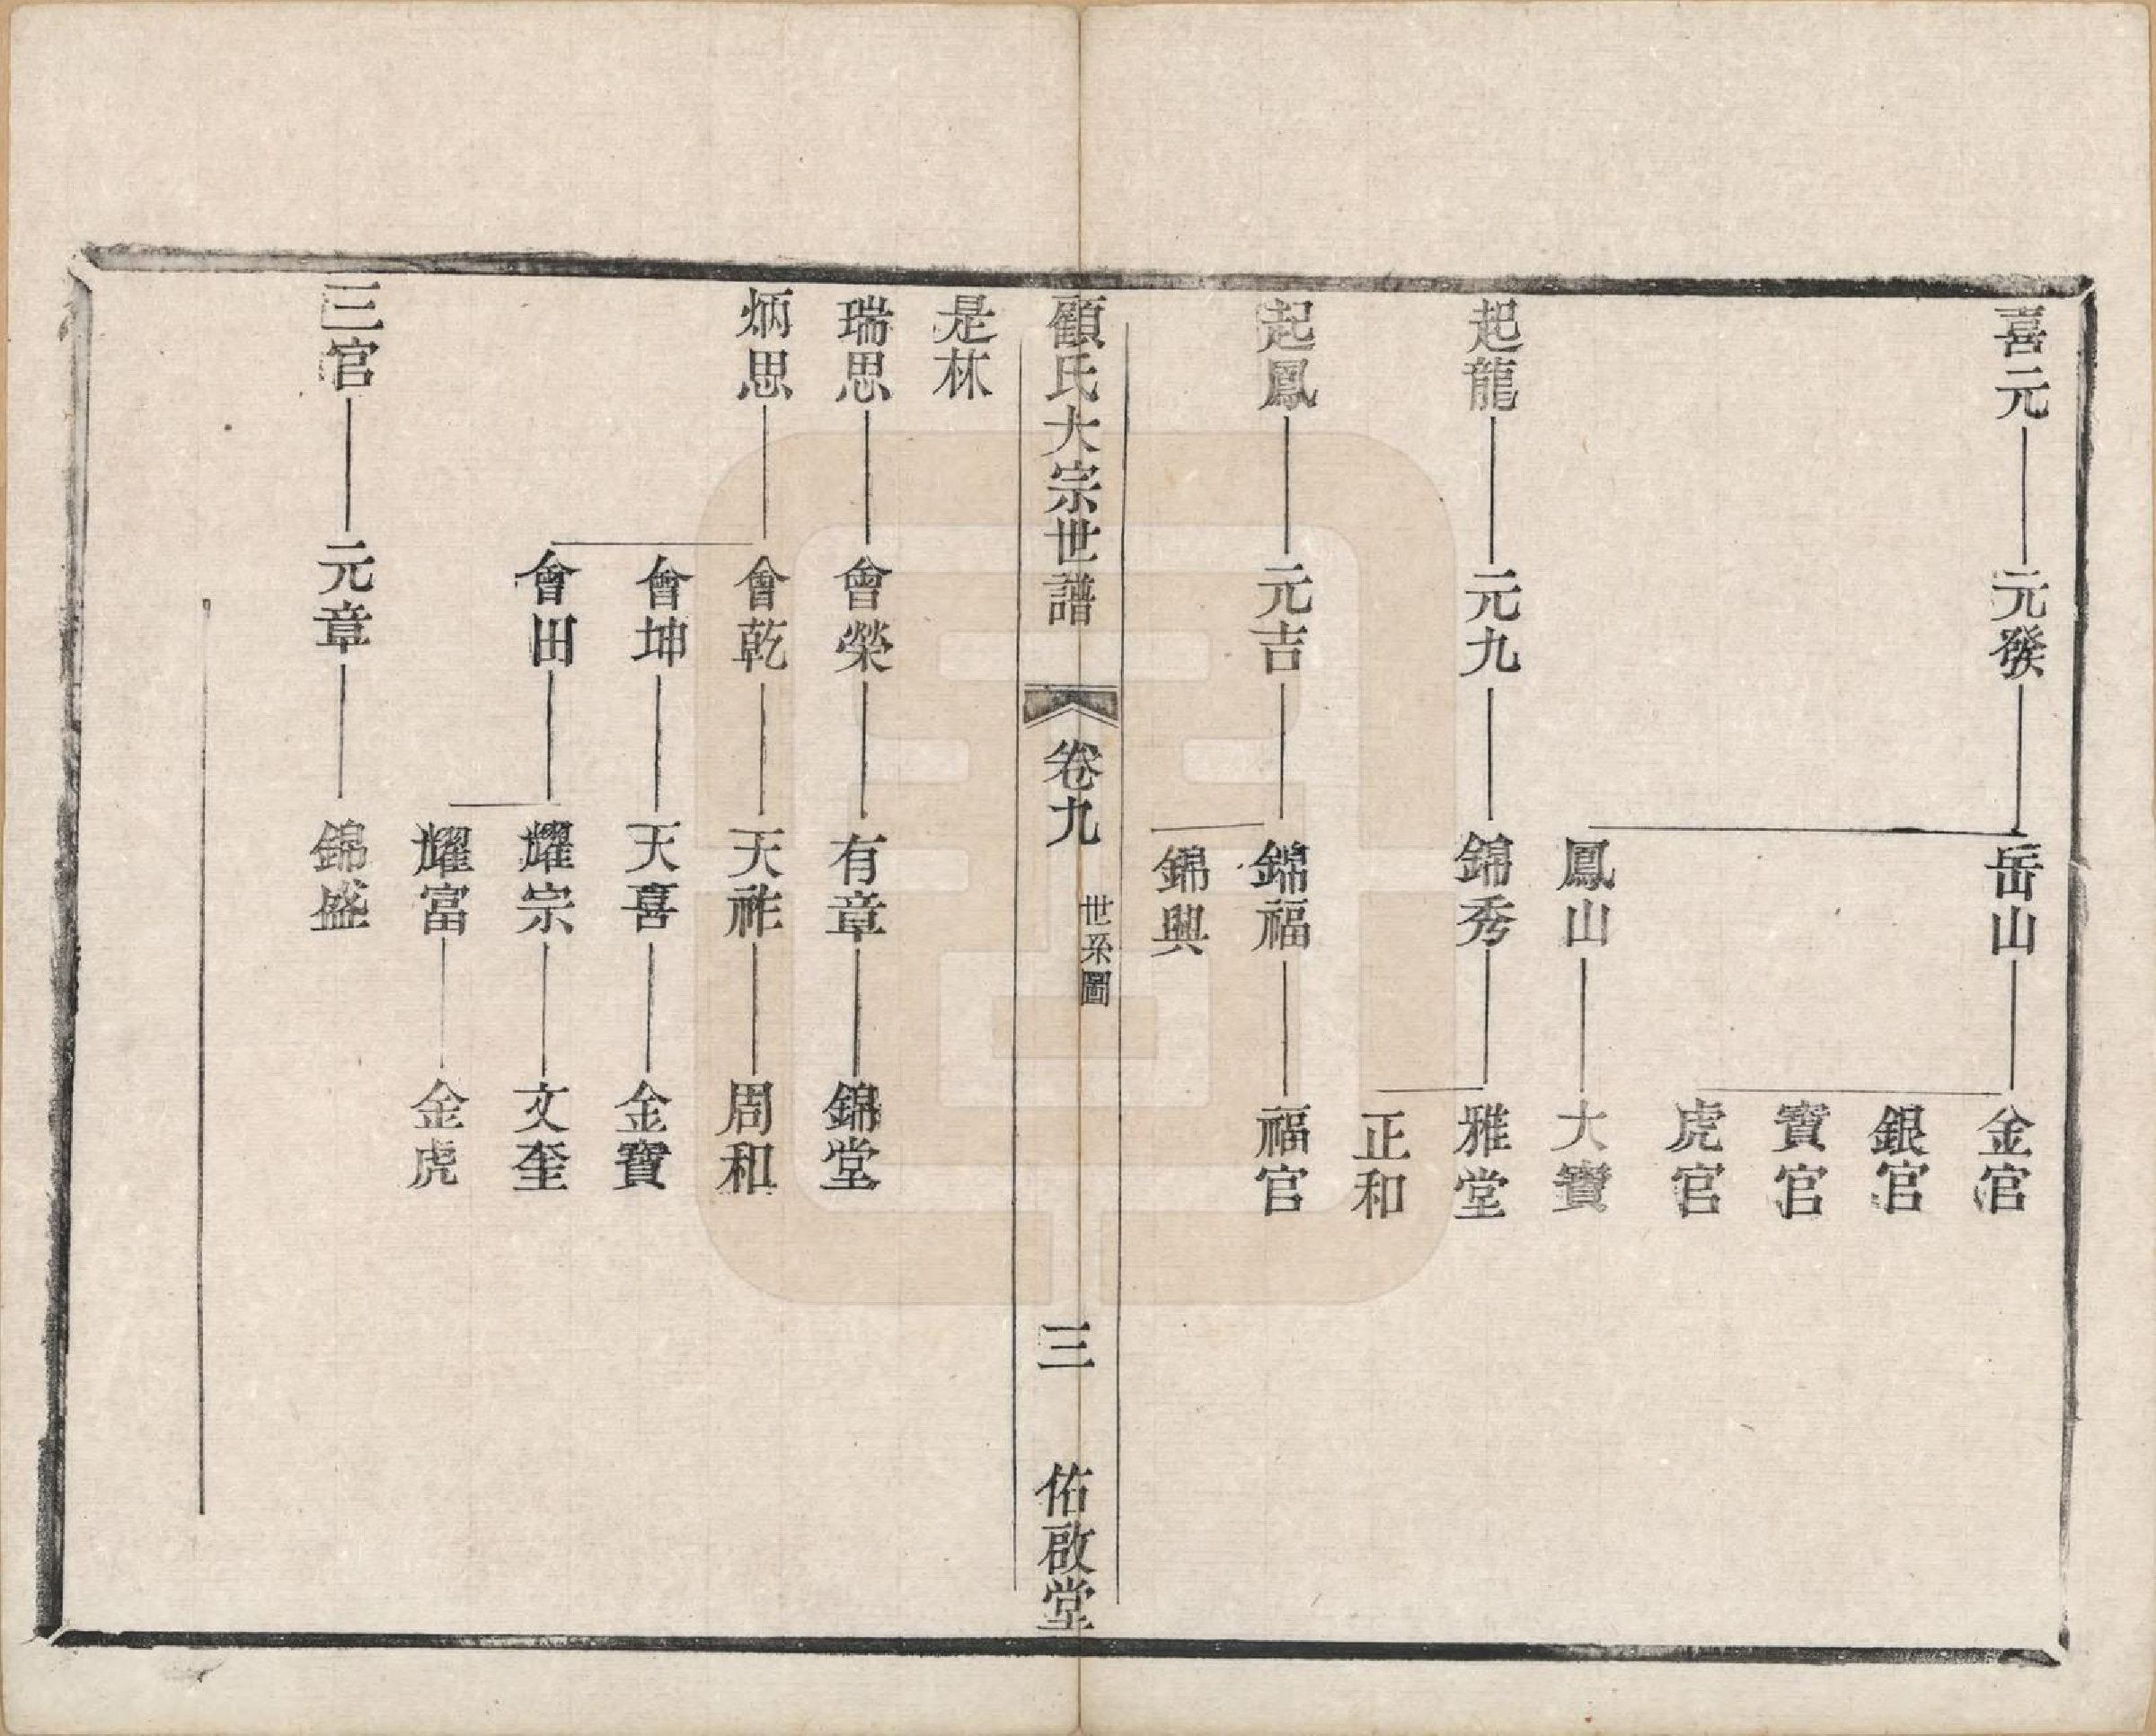 喜元
元發
岳山
金官
銀官
寶官
虎官
鳳山
大寶
起龍
元九
錦秀
雅堂
正和
起鳳
元吉
錦福
福官
錦興
顧氏大宗世譜
卷九
世系圖
三
佑啟堂
是林
瑞思
會榮
有章
錦堂
炳思
會乾
天祚
周和
會坤
天喜
金寶
會田
耀宗
文奎
耀富
金虎
三官
元章
錦盛